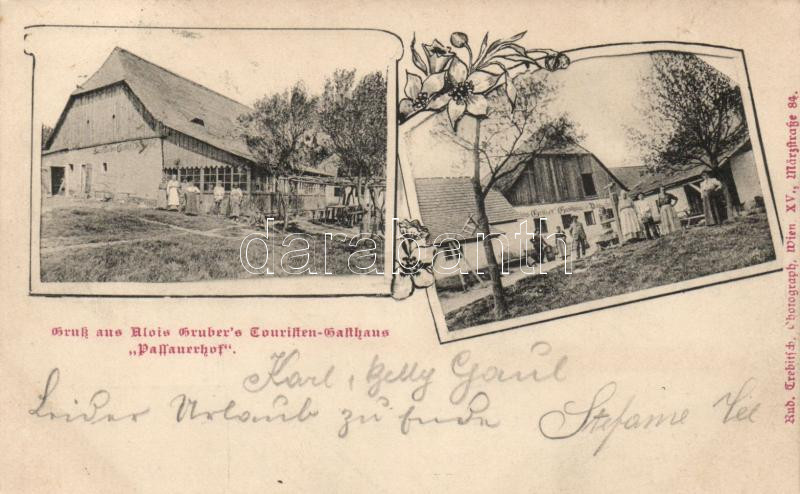 Gruß aus Alois Gruber's Touristen-Gasthaus
„Passauerhof“.
Karl, Betty Gaul
Leider Urlaub zu Ende
Stefanie
Rud. Trebitsch, Photograph, Wien, XV., Märzstraße 84.
darabanth